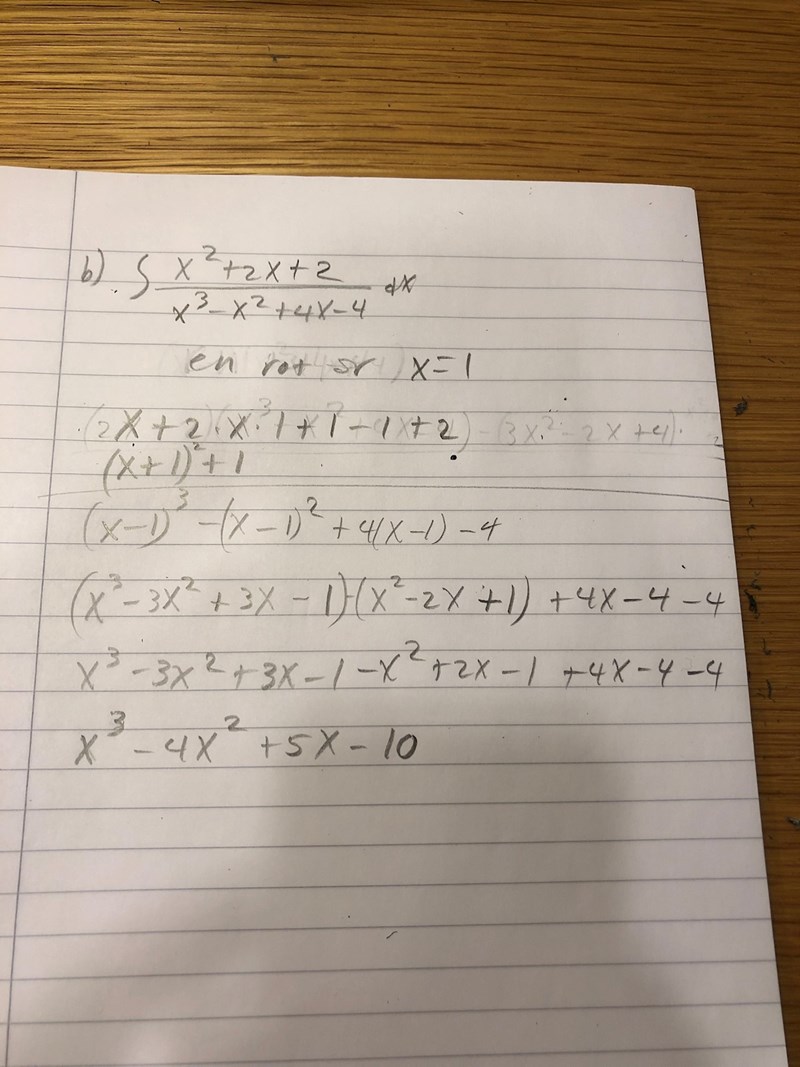 b) ∫ x²+2x+2 / x³-x²+4x-4 dx
en rot är x=1
(x+1)²+1
(x-1)³-(x-1)²+4(x-1)-4
(x³-3x²+3x-1)-(x²-2x+1)+4x-4-4
x³-3x²+3x-1-x²+2x-1+4x-4-4
x³-4x²+5x-10